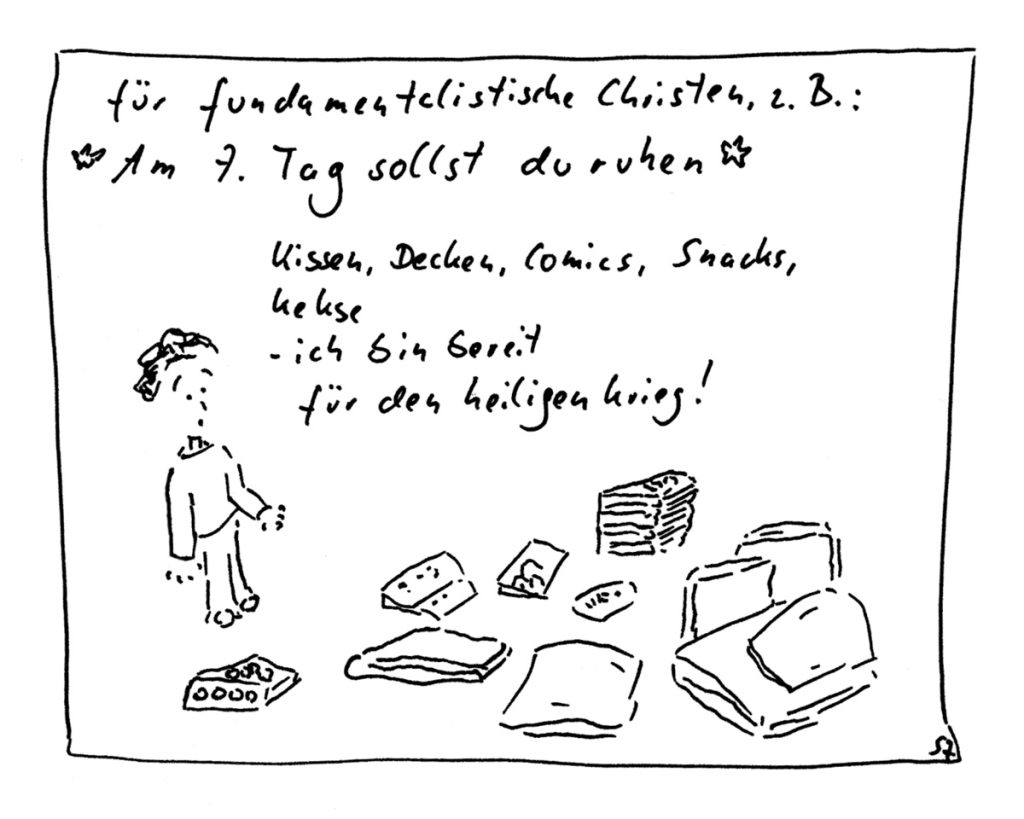 für fundamentalistische Christen, z. B.:
Am 7. Tag sollst du ruhen
Kissen, Decken, Comics, Snacks,
Kekse
- ich bin bereit
für den heiligen Krieg!